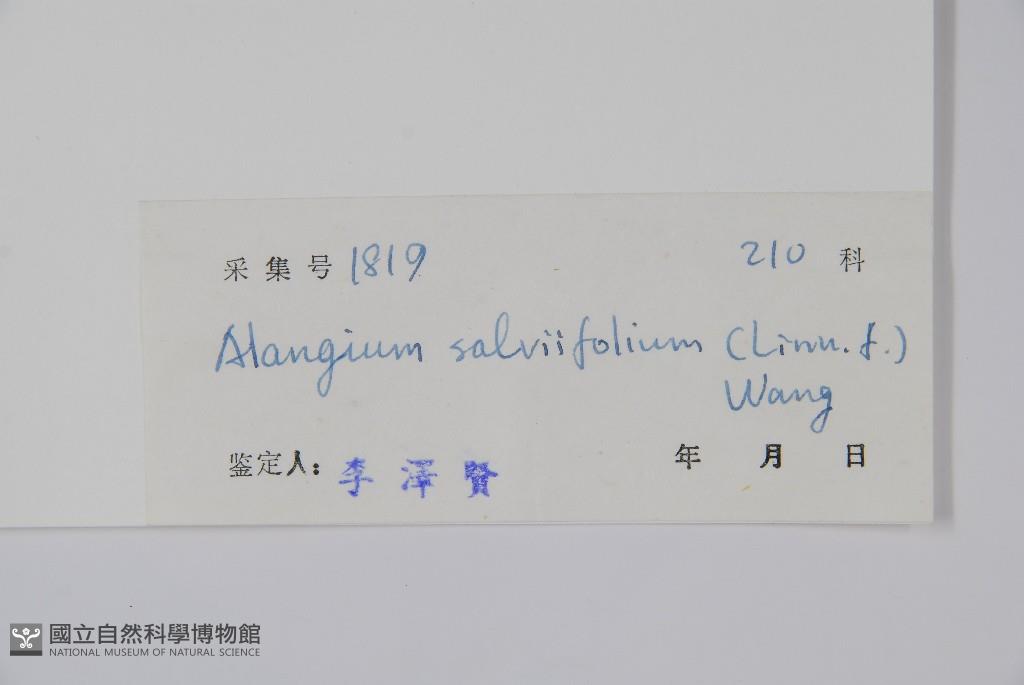 采集号 1819 210 科
Alangium salviifolium (Linn. f.)
Wang
鉴定人: 李澤賢 年 月 日
國立自然科學博物館
NATIONAL MUSEUM OF NATURAL SCIENCE